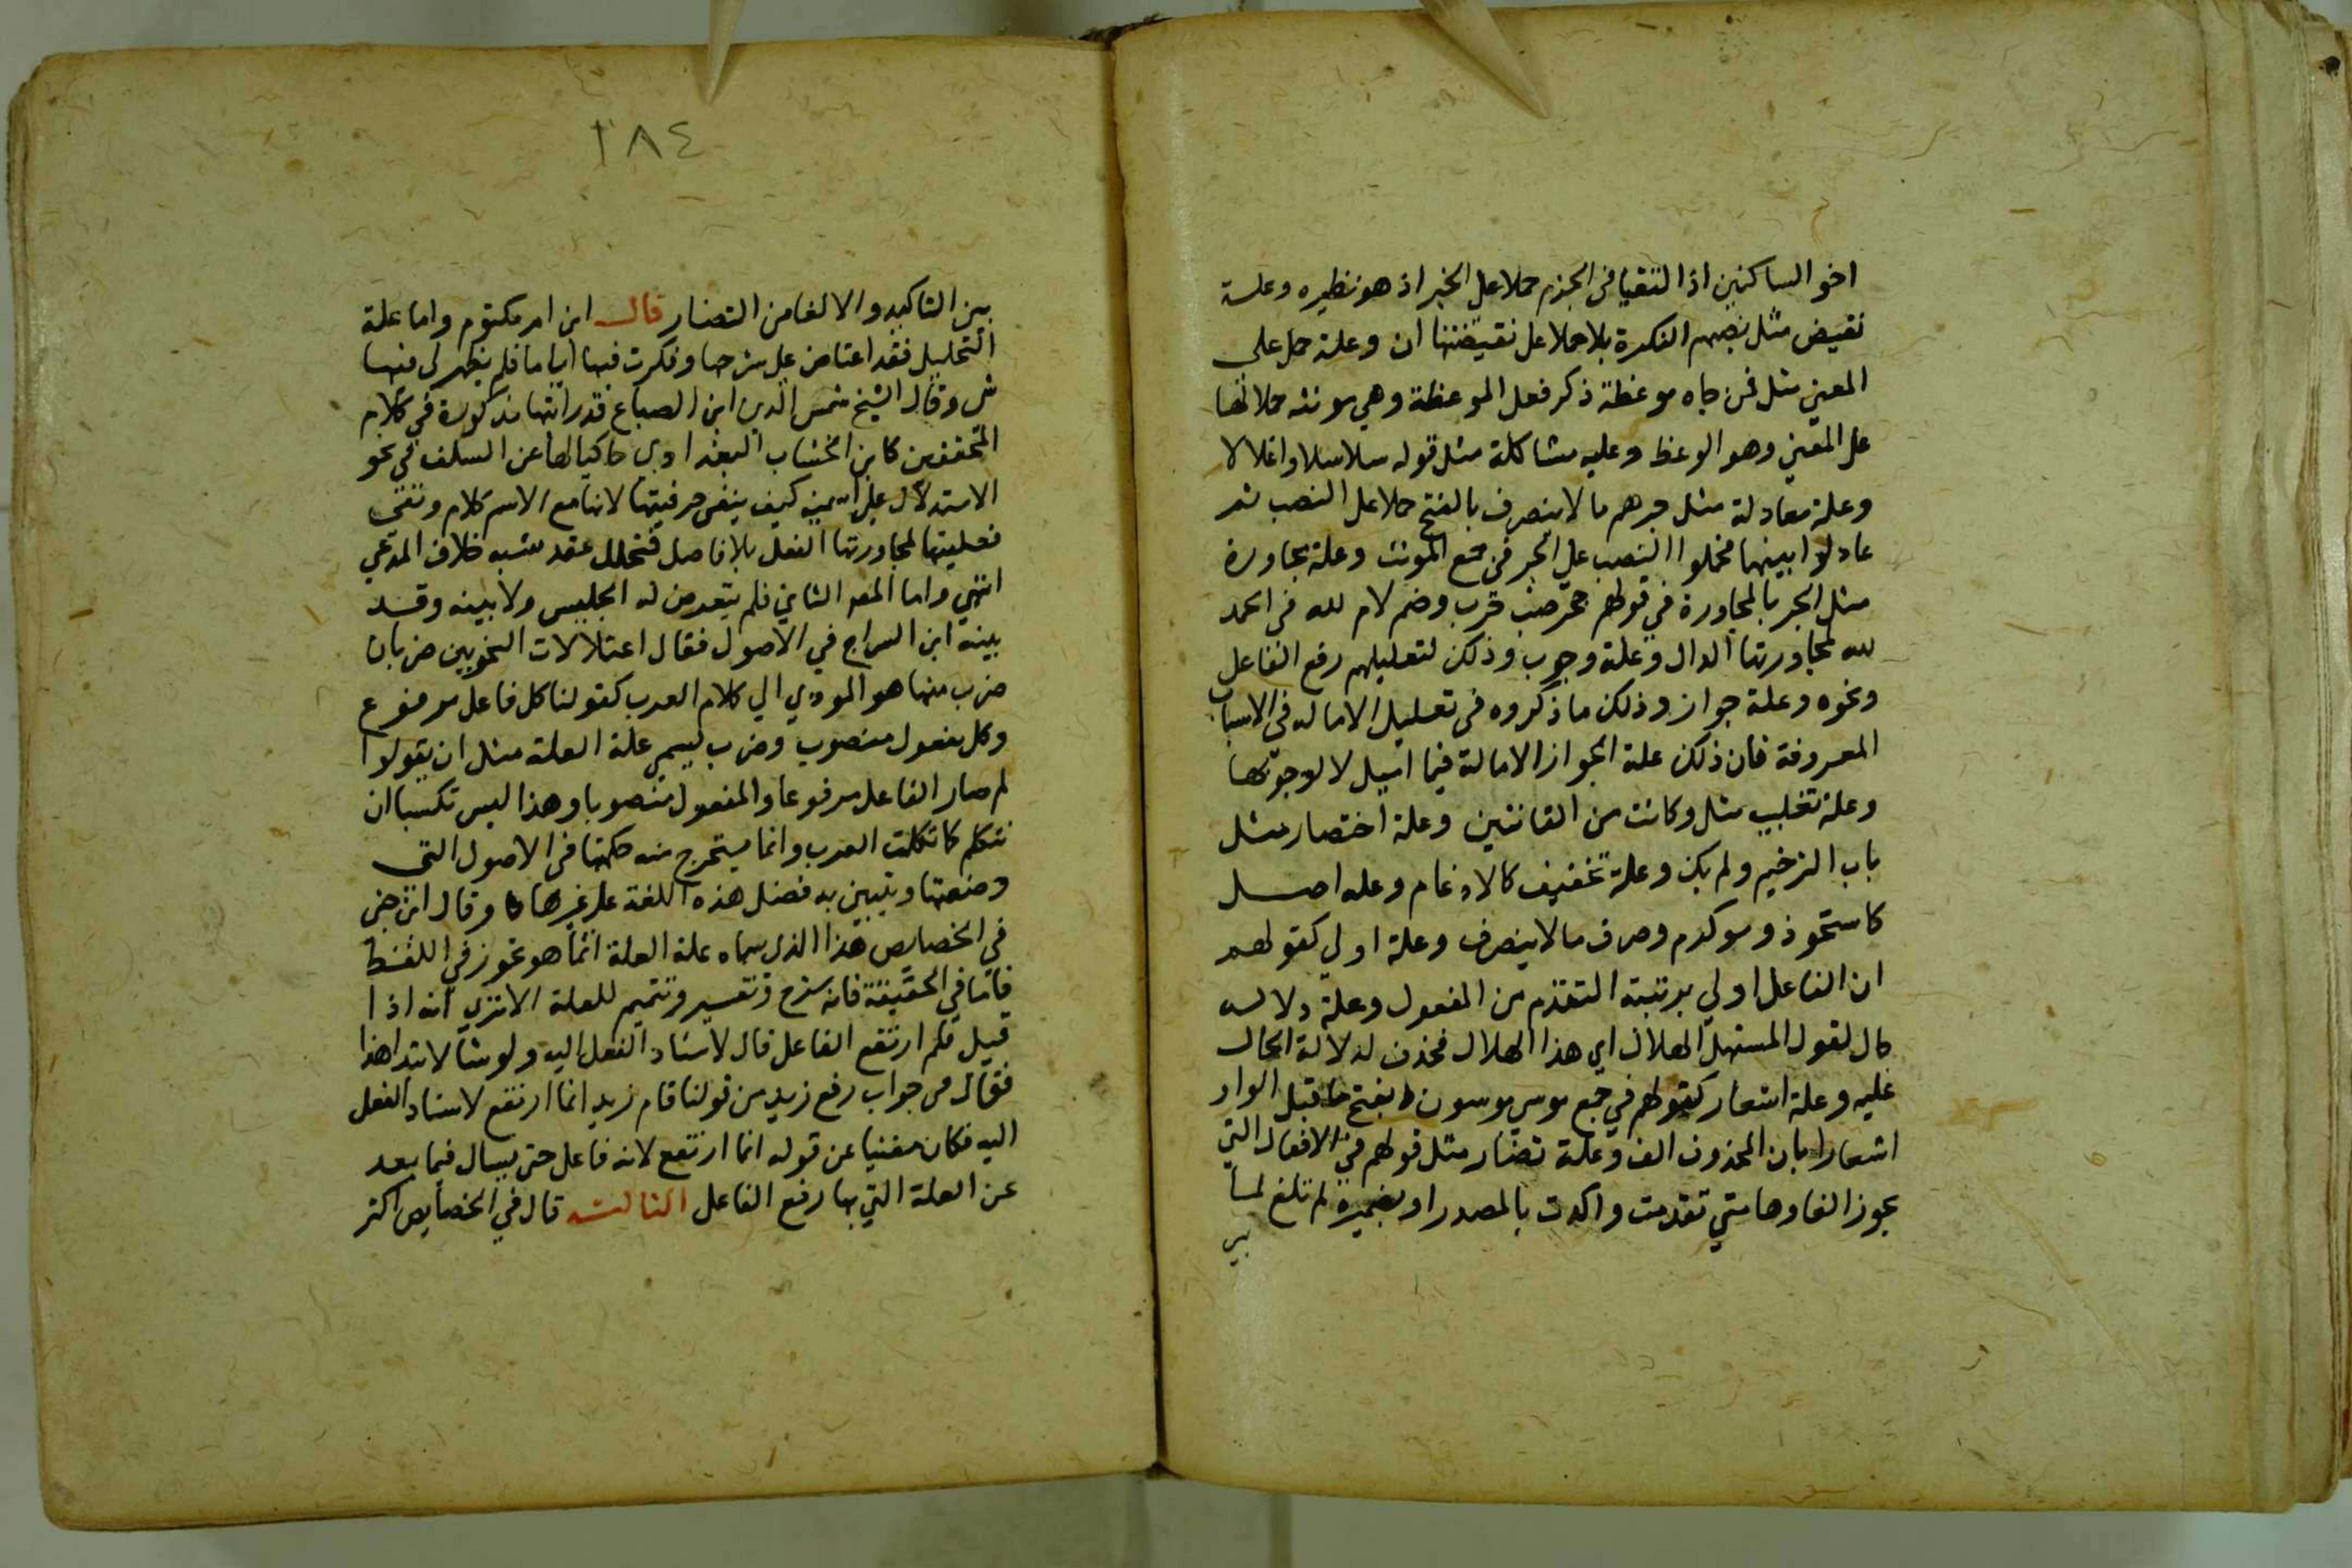 اخو الساكنين اذا التقيا في الجزم حملا على الخبر اذ هو نظيره وعلة
نقيض مثل نصبهم النكرة بلا حملا على نقيضتها ان وعلة حمل على
المعنى مثل فمن جاه موعظة ذكر فعل الموعظة وهي مونثه حملا لها
على المعنى وهو الوعظ وعليه مشاكلة مثل قوله سلاسلا واغلالا
وعلة معادلة مثل جرهم مالا ينصرف بالفتح حملا على النصب ثم
عادلوا بينهما فحملوا النصب على الجر في جمع المونث وعلة مجاورة
مثل الجر بالمجاورة في قولهم جحر ضب خرب وضم لام لله في الحمد
لله لمجاورتها الدال وعلة وجوب وذلك لتعليلهم رفع الفاعل
ونحوه وعلة جواز وذلك ما ذكروه في تعليل الاماله في الاسباب
المعروفة فان ذلك علة الجواز الامالة فيما اميل لا لوجوبها
وعلة تغليب مثل وكانت من القانتين وعلة اختصار مثل
باب الترخيم ولم يك وعلة تخفيف كالادغام وعله اصل
كاستحوذ ويوكرم وصرف مالا ينصرف وعلة اولي كقولهم
ان الفاعل اولي برتبته التقدم من المفعول وعلة دلاله
حال لقول المستهل الهلال اي هذا الهلال فحذف لدلالة الحال
عليه وعلة اشعار كقولهم في جمع موسي موسون بفتح ما قبل الواو
اشعارا بان المحذوف الف وعلة تضاد مثل قولهم في الافعال التي
يجوز الغاوها متي تقدمت واكدت بالمصدر او بضميره لم تلغ لما
بين
٢٨٤
بين التاكيد والالغا من التضاد قال ابن ام مكتوم واما علة
التحليل فقد اعتاض على شرحها وفكرت فيها اياما فلم يظهر لي فيها
ش وقال الشيخ شمس الدين ابن الصباغ قد رايتها مذكورة في كلام
المحققين كابن الخشاب البغدادي حاكيا لها عن السلف في نحو
الاستدلال على اسمية كيف بنفي حرفيتها لانها مع الاسم كلام ونفي
فعليتها لمجاورتها الفعل بلا فاصل فتحلل عقد شبه خلاف المدعي
انتهي واما المعه الثاني فلم يتعرض له الجليس ولا بينه وقد
بينه ابن السراج في الاصول فقال اعتلالات النحويين ضربان
ضرب منها هو المودي الي كلام العرب كقولنا كل فاعل مرفوع
وكل مفعول منصوب وضرب يسمي علة العلة مثل ان يقولوا
لم صار الفاعل مرفوعا والمفعول منصوبا وهذا ليس تكسبا ان
نتكلم كما تكلمت العرب وانما يستخرج منه حكمتها في الاصول التي
وضعتها ويتبين به فضل هذه اللغة على غيرها وقال ابن جني
في الخصايص هذا الذي سماه علة العلة انما هو تجوز في اللفظ
فاما في الحقيقة فانه شرح وتفسير وتتميم للعلة الا تري انه اذا
قيل فلم ارتفع الفاعل قال لاسناد الفعل اليه ولو شا لابتدا هذا
فقال في جواب رفع زيد من قولنا قام زيد انما ارتفع لاسناد الفعل
اليه فكان مغنيا عن قوله انما ارتفع لانه فاعل حتى يسال فيما بعد
عن العلة التي بها رفع الفاعل الثالثه قال في الخصايص اكثر